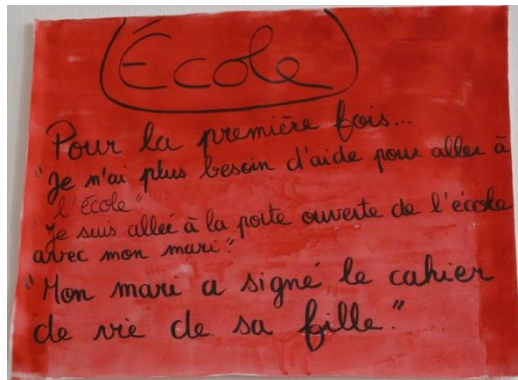 École
Pour la première fois...
"Je n'ai plus besoin d'aide pour aller à
l'école"
"Je suis allée à la porte ouverte de l'école
avec mon mari."
"Mon mari a signé le cahier
de vie de sa fille."